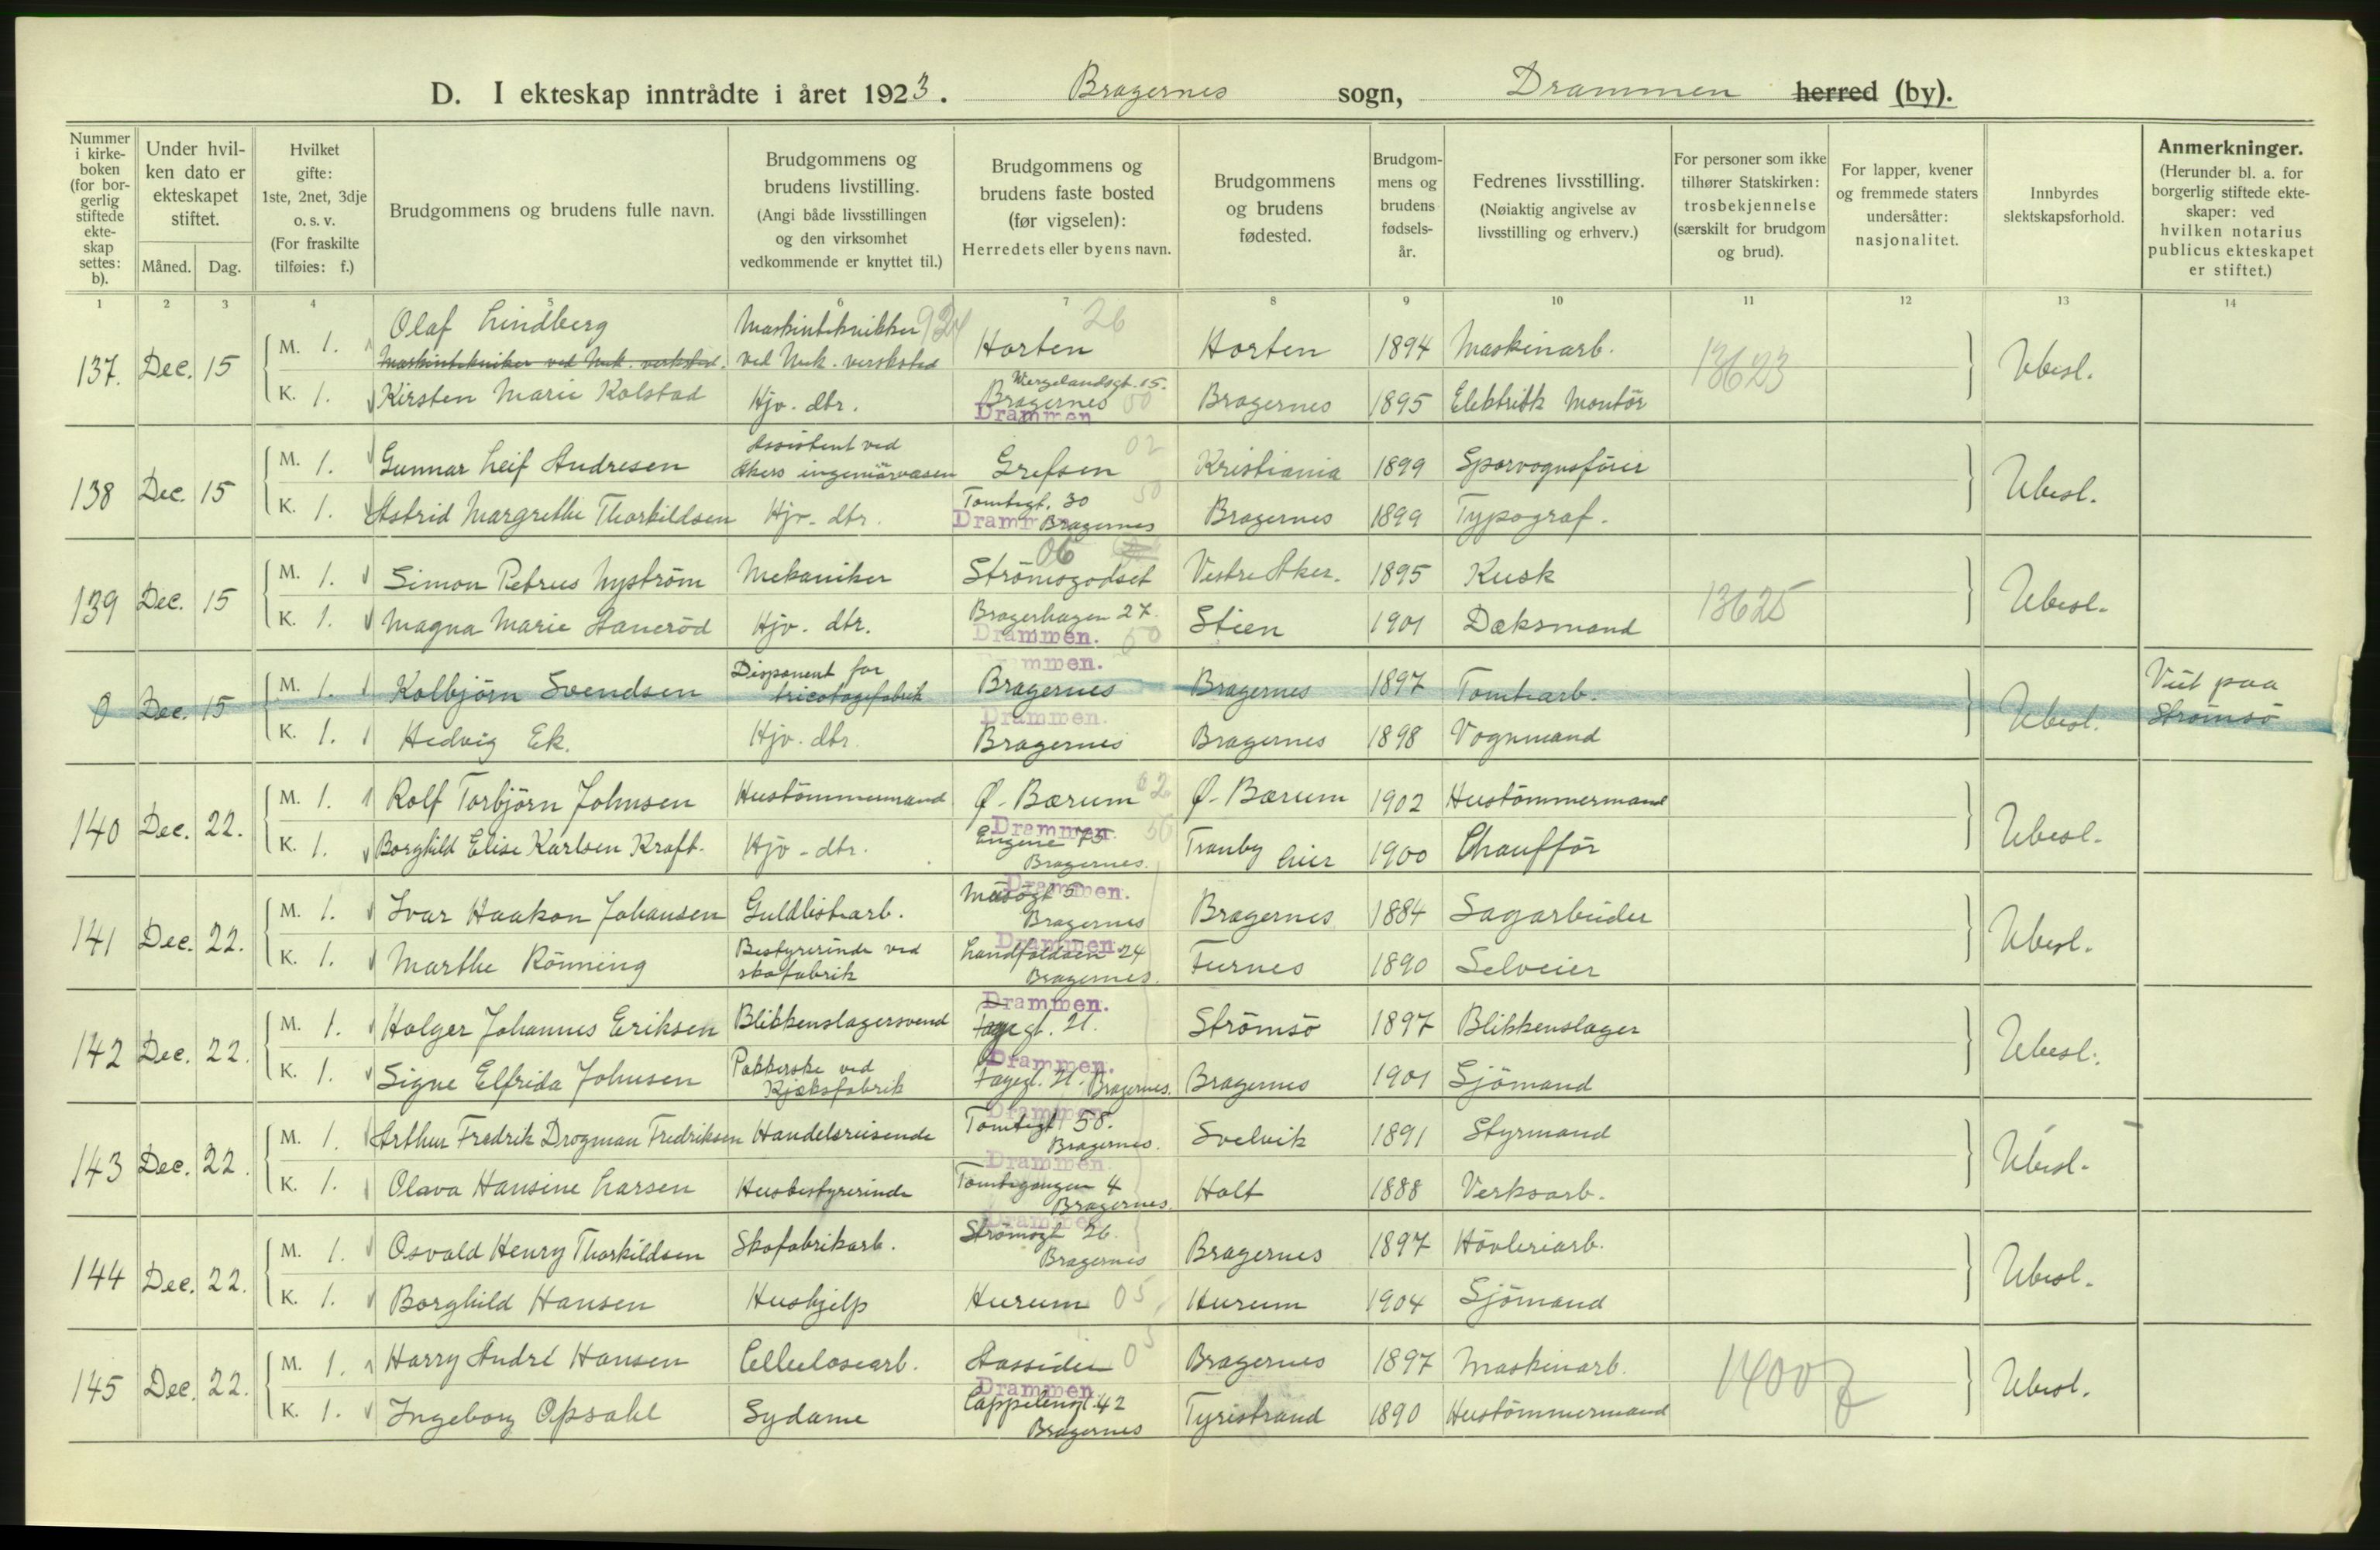 D. I ekteskap inntrådte i året 1923. Bragernes sogn, Drammen herred (by).
Nummer i kirke-boken (for bor-gerlig stiftede ekte-skap settes: b).
Under hvil-ken dato er ekteskapet stiftet.
Måned. Dag.
Hvilket gifte: 1ste, 2net, 3dje o. s. v. (For fraskilte tilføies: f.)
Brudgommens og brudens fulle navn.
Brudgommens og brudens livstilling. (Angi både livsstillingen og den virksomhet vedkommende er knyttet til.)
Brudgommens og brudens faste bosted (før vigselen): Herredets eller byens navn.
Brudgommens og brudens fødested.
Brudgom-mens og brudens fødsels-år.
Fedrenes livsstilling. (Nøiaktig angivelse av livsstilling og erhverv.)
For personer som ikke tilhører Statskirken: trosbekjennelse (særskilt for brudgom og brud).
For lapper, kvener og fremmede staters undersåtter: nasjonalitet.
Innbyrdes slektskapsforhold.
Anmerkninger. (Herunder bl. a. for borgerlig stiftede ekte-skaper: ved hvilken notarius publicus ekteskapet er stiftet.)
1 2 3 4 5 6 7 8 9 10 11 12 13 14
137. Dec. 15 M. 1. Olaf Lindberg Maskintekniker ved Mek. verksted Horten 26 Horten 1894 Maskinarb. 13623 Ubesl.
Maskintekniker ved Mek. verksted.
K. 1. Kirsten Marie Kolstad Hjv. dtr. Wergelandsgt. 15. Bragernes 50 Drammen Bragernes 1895 Elektrikk Montör
138 Dec. 15 M. 1. Gunnar Leif Andresen Assistent ved Akers ingeniörvæsen Grefsen 02 Kristiania 1899 Sporvognsförer Ubesl.
K. 1. Astrid Margrethe Thorkildsen Hjv. dtr. Tomtegt. 30 50 Drammen Bragernes Bragernes 1899 Typograf.
139 Dec. 15 M. 1. Simon Petrus Nyström Mekaniker 06 Strömsgodset Vestre Aker. 1895 Kusk 13625 Ubesl.
K. 1. Magna Marie Haneröd Hjv. dtr. Bragerhagen 27. Drammen. 50 Stien 1901 Dæksmand
0 Dec. 15 M. 1. Kolbjörn Svendsen Disponent for tricotagefabrik Drammen. Bragernes Bragernes 1897 Tomtearb. Ubesl. Viet paa Strömsö
K. 1. Hedvig Ek. Hjv. dtr. Drammen. Bragernes Bragernes 1898 Vognmand
140 Dec. 22. M. 1. Rolf Torbjörn Johnsen Hustömmermand Ø. Bærum 02 Ø. Bærum 1902 Hustömmermand Ubesl.
K. 1. Borghild Elise Karlsen Kraft. Hjv. dtr. Drammen. Engene 75 50 Bragernes. Tranby Lier 1900 Chaufför
141 Dec. 22. M. 1. Ivar Haakon Johansen Guldlistearb. Drammen. 5 Bragernes Bragernes 1884 Sagarbeider Ubesl.
K. 1. Marthe Rönning Bestyrerinde ved skofabrik Drammen. Landfaldöen 24 Bragernes. Furnes 1890 Selveier
142 Dec. 22. M. 1. Holger Johannes Eriksen Blikkenslagersvend Drammen. 21. Strömsö 1897 Blikkenslager Ubesl.
K. 1. Signe Elfrida Johnsen Pakkerske ved Kjeksfabrik Drammen. 21. Bragernes. Bragernes 1901 Sjömand
143 Dec. 22. M. 1. Arthur Fredrik Drogman Fredriksen Handelsreisende Drammen. Tomtegt 58. Bragernes. Svelvik 1891 Styrmand Ubesl.
K. 1. Olava Hansine Larsen Husbestyrerinde Drammen. Tomtegangen 4 Bragernes. Holt 1888 Verksarb.
144 Dec. 22. M. 1. Osvald Henry Thorkildsen Skofabrikarb. Drammen. Strömsgt 26. Bragernes Bragernes 1897 Hövleriarb. Ubesl.
K. 1. Borghild Hansen Hushjelp Hurum 05 Hurum 1904 Sjömand
145 Dec. 22. M. 1. Harry André Hansen Cellulosearb. Aassiden 05 Bragernes 1897 Maskinarb. 14007 Ubesl.
K. 1. Ingeborg Opsahl Sydame Drammen. Cappelensgt. 42 Bragernes Tyristrand 1890 Hustömmermand